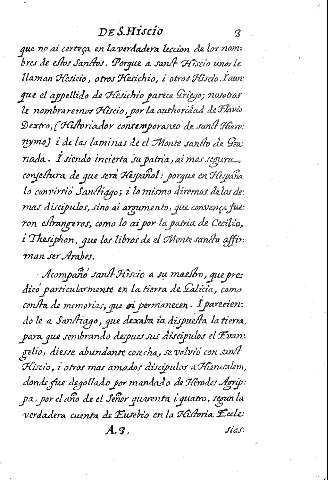 DE S. Hiscio 3
que no ai certeça en la verdadera leccion de los nom-
bres de estos Sanctos. Porque a sanct Hiscio unos le
llaman Hesicio, otros Hesichio, i otros Hiscio. I aun-
que el appellido de Hesichio parece Griego; nosotros
le nombraremos Hiscio, por la authoridad de Flavio
Dextro, (Historiador contemporaneo de sanct Hiero-
nymo) i de las laminas de el Monte sancto de Gra-
nada. I siendo incierta su patria, ai mas segura
conjectura de que será Hespañol: porque en Hespaña
lo convirtió Sanctiago; i lo mismo diremos de los de-
mas discipulos, sino ai argumento, que convença, fue-
ron estrangeros, como lo ai por la patria de Cecilio,
i Thesiphon, que los libros de el Monte sancto affir-
man ser Arabes.
Acompañó sanct Hiscio a su maestro, que pre-
dicó particularmente en la tierra de Galicia, como
consta de memorias, que oi permanecen. I parecien-
dole a Sanctiago, que dexaba ia dispuesta la tierra,
para que sembrando despues sus discipulos el Evan-
gelio, diesse abundante cosecha, se volvió con sanct
Hiscio, i otros mas amados discipulos a Hierusalem,
donde fue degollado por mandado de Herodes Agrip-
pa, por el año de el Señor quarenta i quatro, segun la
verdadera cuenta de Eusebio en la Historia Ecle-
A.3. sias.